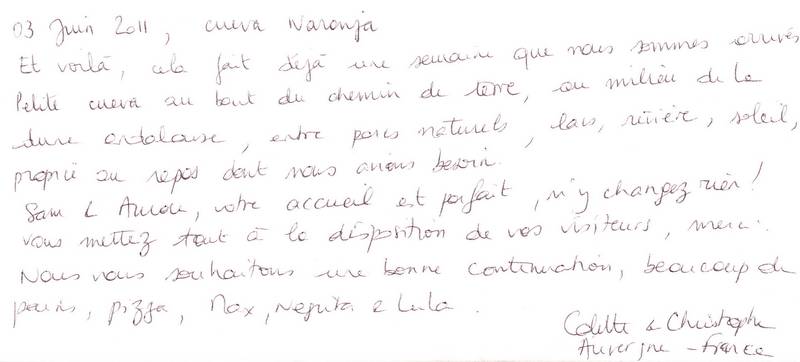 03 Juin 2011, cueva Naranja
Et voilà, cela fait déjà une semaine que nous sommes arrivés
Petite cueva au bout du chemin de terre, au milieu de la
dune andalouse, entre parcs naturels, lacs, rivière, soleil,
propice au repos dont nous avions besoin.
Sam & votre accueil est parfait, n'y changez rien!
vous mettez tout à la disposition de vos visiteurs, merci.
Nous vous souhaitons une bonne continuation, beaucoup de
pizza, Max, Negrita & Lula.
Colette & Christophe
Auvergne - France